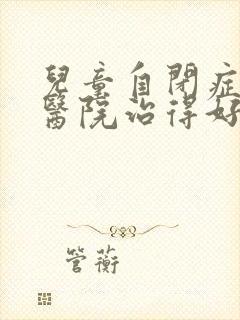 兒童自閉症
醫院治得好
管蘅